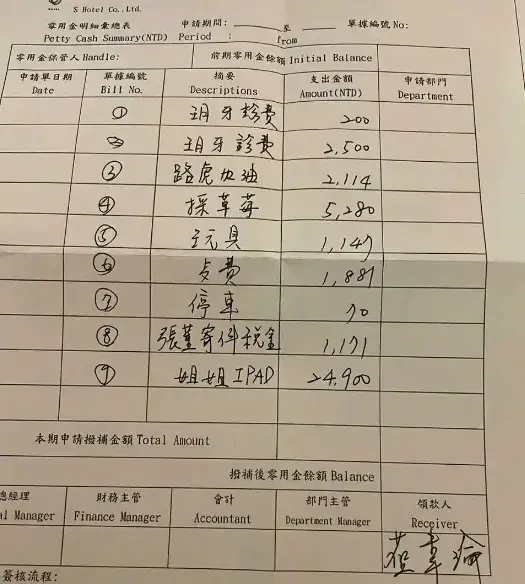 S Hotel Co., Ltd.
零用金明細彙總表 申請期間: 至 單據編號 No:
Petty Cash Summary(NTD) Period : from
零用金保管人 Handle: 前期零用金餘額 Initial Balance
申請單日期 單據編號 摘要 支出金額 申請部門
Date Bill No. Descriptions Amount(NTD) Department
① 玥牙診費 200
② 玥牙診費 2,500
③ 路虎加油 2,114
④ 採草莓 5,280
⑤ 玩具 1,147
⑥ 費 1,881
⑦ 停車 70
⑧ 張董寄件稅金 1,171
⑨ 姐姐IPAD 24,900
本期申請撥補金額 Total Amount
撥補後零用金餘額 Balance
總經理 財務主管 會計 部門主管 領款人
al Manager Finance Manager Accountant Department Manager Receiver
簽核流程: